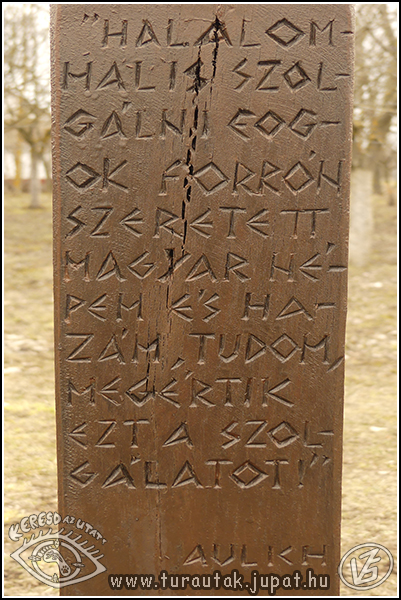 "HALALOM-
HAL IS SZOL-
GÁLNI FOG-
OK FORRÓN
SZERETETT
MAGYAR NÉ-
PEM ÉS HA-
ZÁM, TUDOM,
MEGÉRTIK
EZT A SZOL-
GÁLATOT!"
AULICH
KERESD AZ UTAT.
www.turautak.jupat.hu